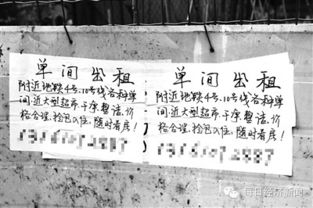 单间出租
附近地铁4号、10号线各种单
间近大型超市干净整洁.价
格合理.拎包入住,随时看房!
单间出租
附近地铁4号、10号线各种单
间近大型超市干净整洁.价
格合理.拎包入住,随时看房!
每日经济新闻